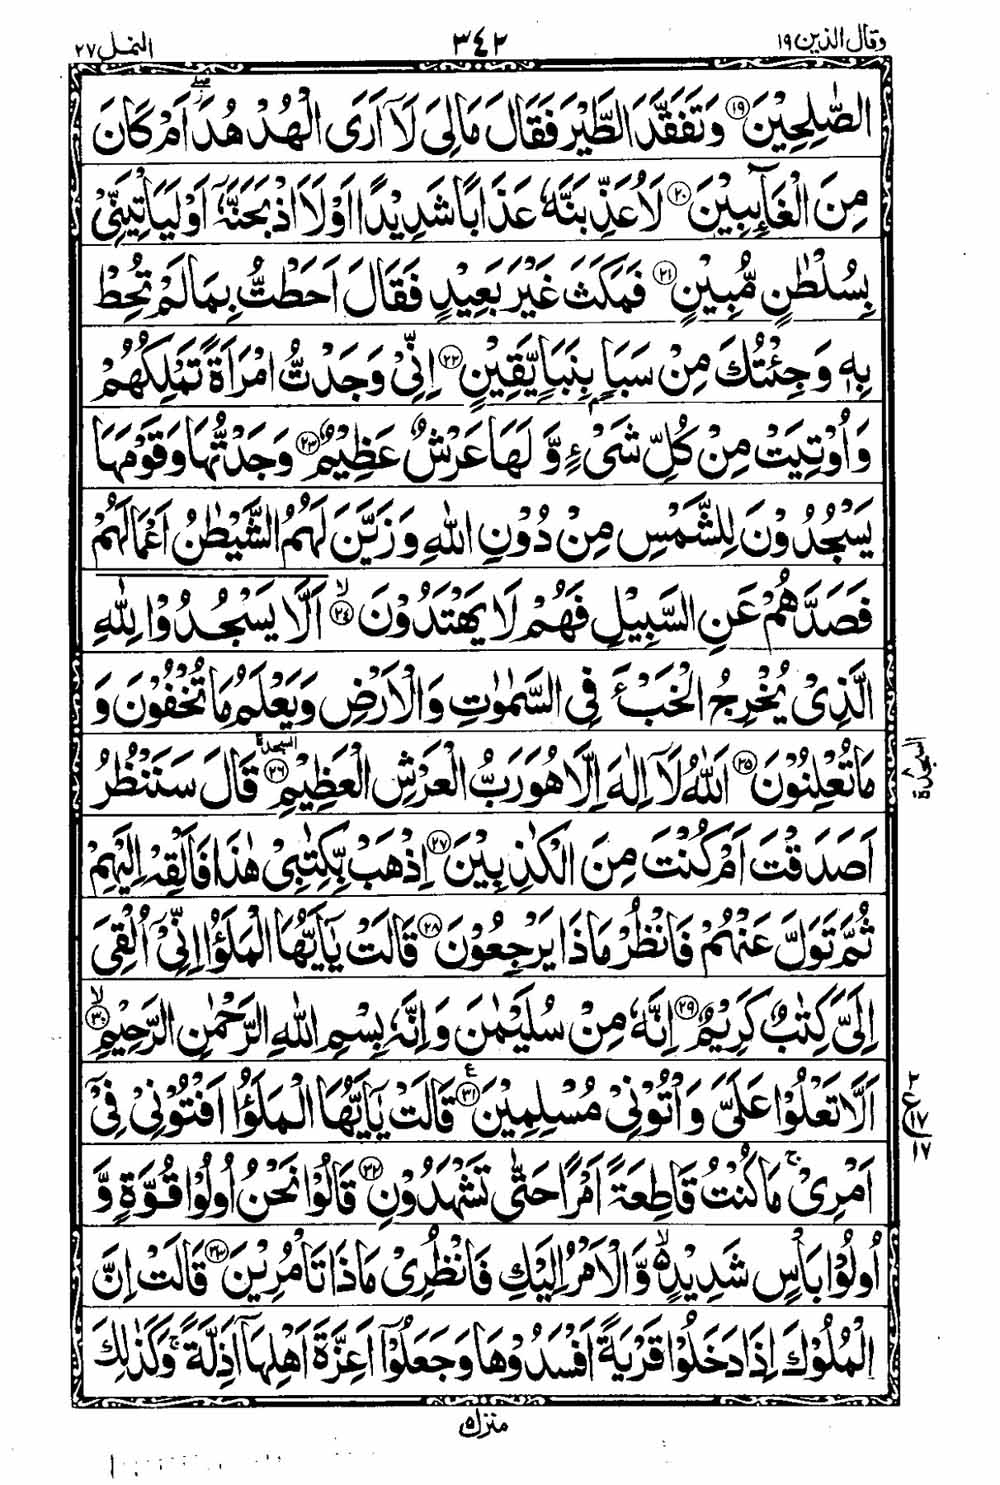 وقال الذین ۱۹
۳۴۲
النمل ۲۷
الصّٰلِحِیْنَ ۱۹ وَتَفَقَّدَ الطَّیْرَ فَقَالَ مَالِیَ لَاۤ اَرَی الْهُدْهُدَ ۖ اَمْ کَانَ
مِنَ الْغَآئِبِیْنَ ۲۰ لَاُعَذِّبَنَّهٗ عَذَابًا شَدِیْدًا اَوْ لَاَاذْبَحَنَّهٗۤ اَوْ لَیَاْتِیَنِّیْ
بِسُلْطٰنٍ مُّبِیْنٍ ۲۱ فَمَکَثَ غَیْرَ بَعِیْدٍ فَقَالَ اَحَطْتُّ بِمَا لَمْ تُحِطْ
بِهٖ وَجِئْتُكَ مِنْ سَبَاٍۭ بِنَبَاٍ یَّقِیْنٍ ۲۲ اِنِّیْ وَجَدْتُّ امْرَاَةً تَمْلِکُهُمْ
وَاُوْتِیَتْ مِنْ کُلِّ شَیْءٍ وَّلَهَا عَرْشٌ عَظِیْمٌ ۲۳ وَجَدْتُّهَا وَقَوْمَهَا
یَسْجُدُوْنَ لِلشَّمْسِ مِنْ دُوْنِ اللّٰهِ وَزَیَّنَ لَهُمُ الشَّیْطٰنُ اَعْمَالَهُمْ
فَصَدَّهُمْ عَنِ السَّبِیْلِ فَهُمْ لَا یَهْتَدُوْنَ ۙ۲۴ اَلَّا یَسْجُدُوْا لِلّٰهِ
الَّذِیْ یُخْرِجُ الْخَبْءَ فِی السَّمٰوٰتِ وَالْاَرْضِ وَیَعْلَمُ مَا تُخْفُوْنَ وَ
مَا تُعْلِنُوْنَ ۲۵ اَللّٰهُ لَاۤ اِلٰهَ اِلَّا هُوَ رَبُّ الْعَرْشِ الْعَظِیْمِ ۲۶ السجدة قَالَ سَنَنْظُرُ
السجدة ۸
اَصَدَقْتَ اَمْ کُنْتَ مِنَ الْکٰذِبِیْنَ ۲۷ اِذْهَبْ بِّکِتٰبِیْ هٰذَا فَاَلْقِهْ اِلَیْهِمْ
ثُمَّ تَوَلَّ عَنْهُمْ فَانْظُرْ مَاذَا یَرْجِعُوْنَ ۲۸ قَالَتْ یٰۤاَیُّهَا الْمَلَؤُا اِنِّیْۤ اُلْقِیَ
اِلَیَّ کِتٰبٌ کَرِیْمٌ ۲۹ اِنَّهٗ مِنْ سُلَیْمٰنَ وَاِنَّهٗ بِسْمِ اللّٰهِ الرَّحْمٰنِ الرَّحِیْمِ ۙ۳۰
اَلَّا تَعْلُوْا عَلَیَّ وَاْتُوْنِیْ مُسْلِمِیْنَ ۳۱ ع قَالَتْ یٰۤاَیُّهَا الْمَلَؤُا اَفْتُوْنِیْ فِیْۤ
۲ ع ۱۷ ۱۷
اَمْرِیْ ۚ مَا کُنْتُ قَاطِعَةً اَمْرًا حَتّٰی تَشْهَدُوْنِ ۳۲ قَالُوْا نَحْنُ اُولُوْا قُوَّةٍ وَّ
اُولُوْا بَاْسٍ شَدِیْدٍ ۙ۵ وَّالْاَمْرُ اِلَیْكِ فَانْظُرِیْ مَاذَا تَاْمُرِیْنَ ۳۳ قَالَتْ اِنَّ
الْمُلُوْكَ اِذَا دَخَلُوْا قَرْیَةً اَفْسَدُوْهَا وَجَعَلُوْۤا اَعِزَّةَ اَهْلِهَاۤ اَذِلَّةً ۚ وَکَذٰلِكَ
منزل ۵